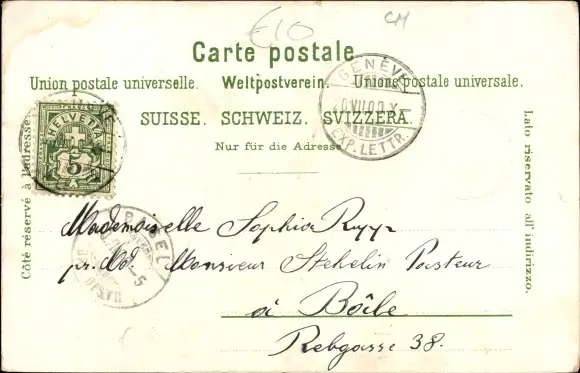 €10 CM
Carte postale.
Union postale universelle. Weltpostverein. Unione postale universale.
SUISSE. SCHWEIZ. SVIZZERA.
Nur für die Adresse.
Côté réservé à l'adresse.
Lato riservato all' indirizzo.
HELVETIA
5
GENÈVE
VII.00.X
EXP. LETTR.
BASEL
5
Mademoiselle Sophie Rupp
pr. Ad. Monsieur Stehelin Pasteur
à Bâle
Rebgasse 38.